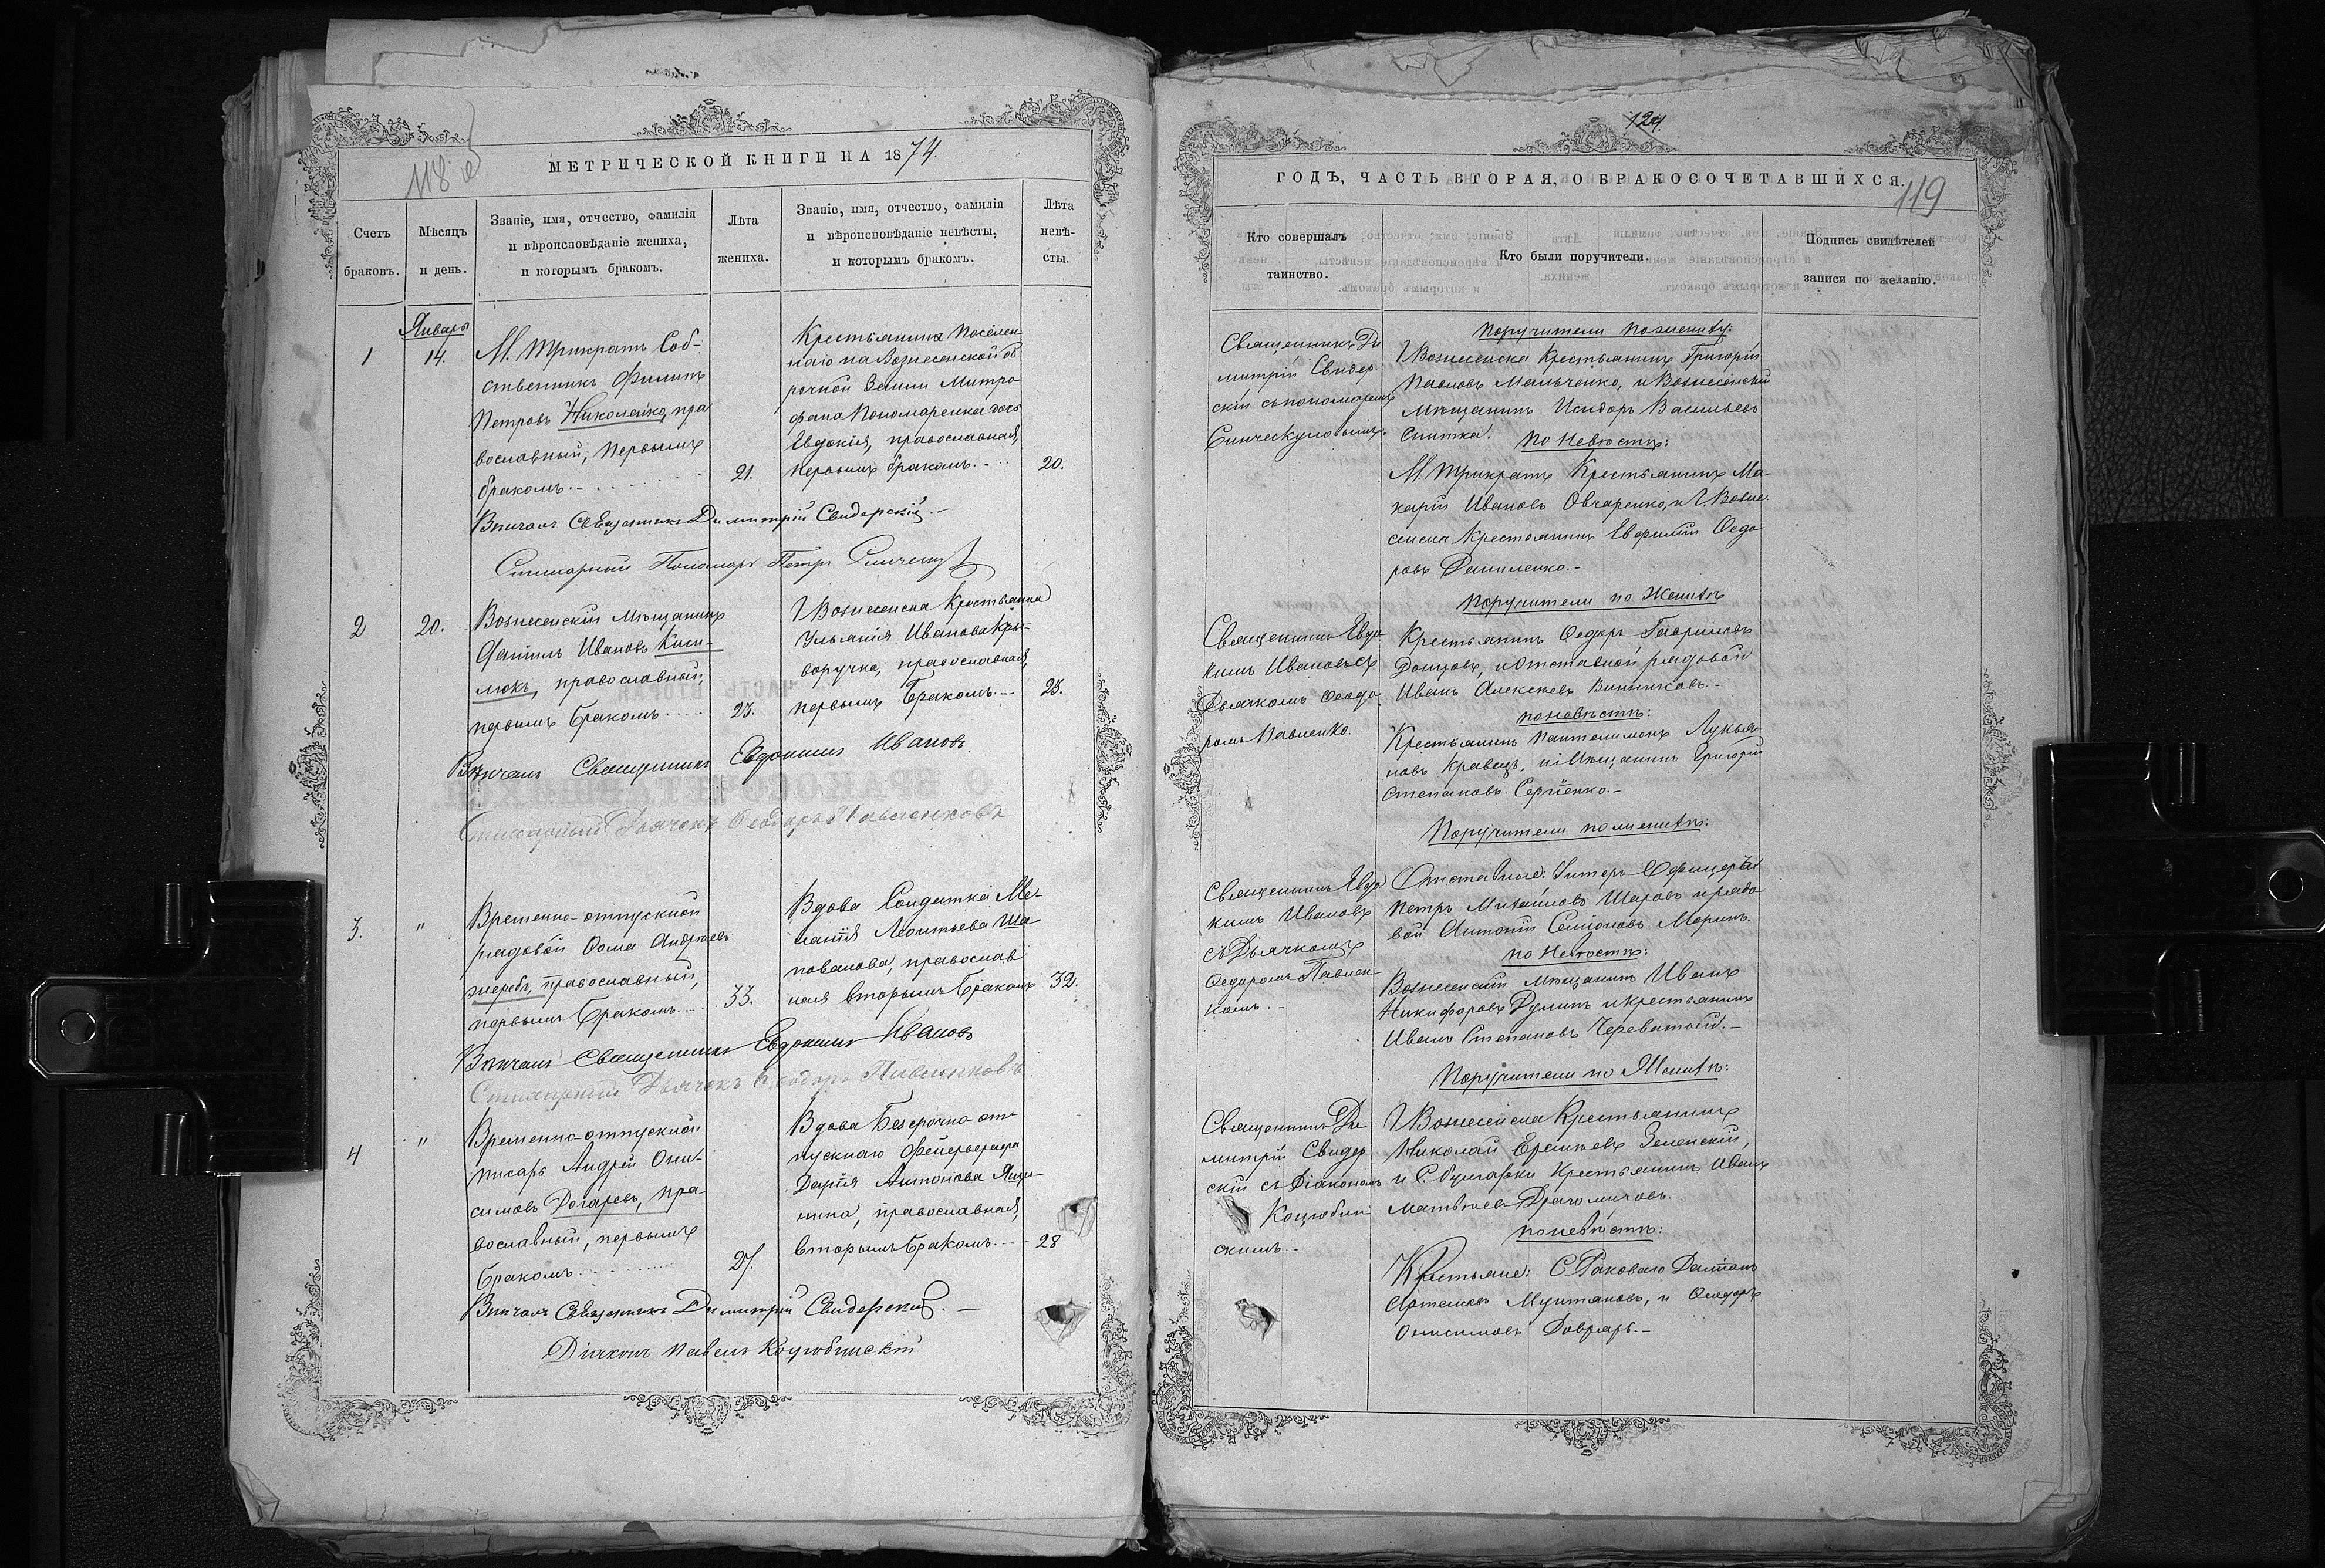 118 об
МЕТРИЧЕСКОЙ КНИГИ НА 1874.
Счетъ браковъ.
Мѣсяцъ и день.
Званіе, имя, отчество, фамилія и вѣроисповѣданіе жениха, и которымъ бракомъ.
Лѣта жениха.
Званіе, имя, отчество, фамилія и вѣроисповѣданіе невѣсты, и которымъ бракомъ.
Лѣта невѣ-
сты.
Январь
1
14.
М. Трикратъ Соб-
ственникъ Филипъ
Петровъ Николайко, пра
вославный, первымъ
бракомъ.
21.
Крестьянина Поселен
наго на Вознесенской об
рочной Земли Митро
фана Пономаренка дочь
Евдокія, православная,
первымъ бракомъ.
20.
Вѣнчалъ Священникъ Димитрій Свидерскій.
Стихарный Пономарь Петръ
2
20.
Вознесенскій Мѣщанинъ
Даніилъ Ивановъ Киси-
люкъ, православный,
первымъ бракомъ
23.
Г Вознесенска Крестьянка
Ульянія Иванова Кри-
воручка, православная,
первымъ бракомъ.
23.
Вѣнчалъ Священникъ Евдокимъ Ивановъ
Стихарный Дьячекъ Феодоръ Павленковъ
3.
"
Временно-отпускной
рядовой Фома Андреевъ
Жеребъ, православный,
первымъ бракомъ
33.
Вдова Солдатка Ме-
ланія Леонтьева Ша
повалова, православ
ная вторымъ бракомъ
32.
Вѣнчалъ Священникъ Евдокимъ Ивановъ
Стихарный Дьячекъ Феодоръ Павленковъ
4
"
Временно-отпускной
писарь Андрей Они-
симовъ Догаревъ, пра-
вославный, первымъ
бракомъ.
27.
Вдова Безсрочно-от-
пускнаго Фейерверкера
Дарія Антонова
православная,
вторымъ бракомъ.
28
Вѣнчалъ Священникъ Димитрій Свидерскій.
Діаконъ Павелъ Коцюбинскій
124.
ГОДЪ, ЧАСТЬ ВТОРАЯ, О БРАКОСОЧЕТАВШИХСЯ.
119
Кто совершалъ таинство.
Кто были поручители.
Подпись свидѣтелей записи по желанію.
Священникъ Ди
митрій Свидер
скій съ пономаремъ
Поручители по жениху:
Г Вознесенска Крестьянинъ Григорій
Павловъ Мальченко, и Вознесенскій
Мѣщанинъ Исидоръ Васильевъ
Снитка.
По Невѣстѣ:
М. Трикратъ Крестьянинъ Ма-
карій Ивановъ Овчаренко, и Г. Возне
сенска Крестьянинъ Евфимій Федо
ровъ Даниленко.
Священникъ Евдо
кимъ Ивановъ съ
Дьячкомъ Феодо
ромъ Павленко.
Поручители по Женихѣ
Крестьянинъ Федоръ Гавриловъ
Донцовъ, и Отставной рядовой
Иванъ Алексѣевъ Винниковъ.
по невѣстѣ:
Крестьянинъ Пантелимонъ Лукья-
новъ Кравецъ, и Мѣщанинъ Григорій
Степановъ Сергіенко.
Священникъ Евдо
кимъ Ивановъ
съ Дьячкомъ
Федоромъ Павлен
комъ.
Поручители по женихѣ:
Отставные: Унтеръ-Офицеръ
Петръ Михайловъ Шаровъ и рядо
вой Антоній Семіоновъ Моринъ.
по Невѣстѣ:
Вознесенскій мѣщанинъ Иванъ
Никифоровъ Дулинъ и крестьянинъ
Иванъ Степановъ Череватый.
Священникъ Ди
митрій Свидер
скій съ Діакономъ
Коцюбин
скимъ.
Поручители по Женихѣ:
Г Вознесенска Крестьянинъ
Николай Еремѣевъ Зеленскій,
и С. Булгарки Крестьянинъ Иванъ
Матвѣевъ Драгомировъ.
по невѣстѣ:
Крестьяне: С Раковаго Даміанъ
Артемовъ Мунтяновъ, и Феодоръ
Онисимовъ